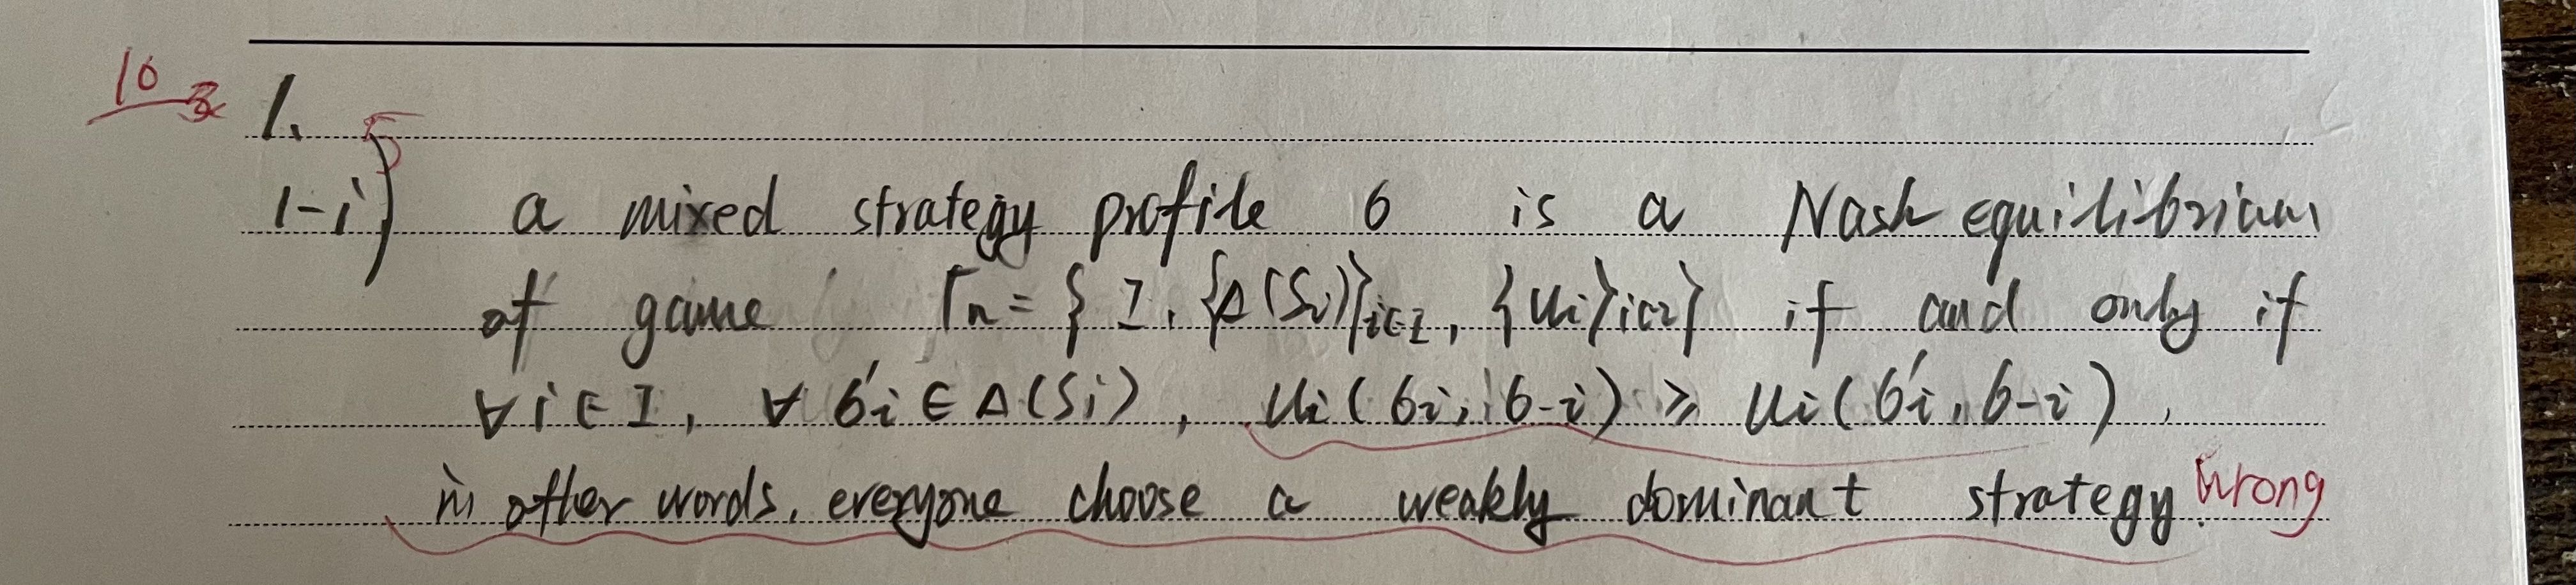 10
1.
1-i) a mixed strategy profile 6 is a Nash equilibrium
of game Γn = { I, {Δ(Si)}i∈I, {ui}i∈I } if and only if
∀ i ∈ I, ∀ 6'i ∈ Δ(Si), ui(6i, 6-i) ≥ ui(6'i, 6-i),
in other words, everyone choose a weakly dominant strategy. Wrong